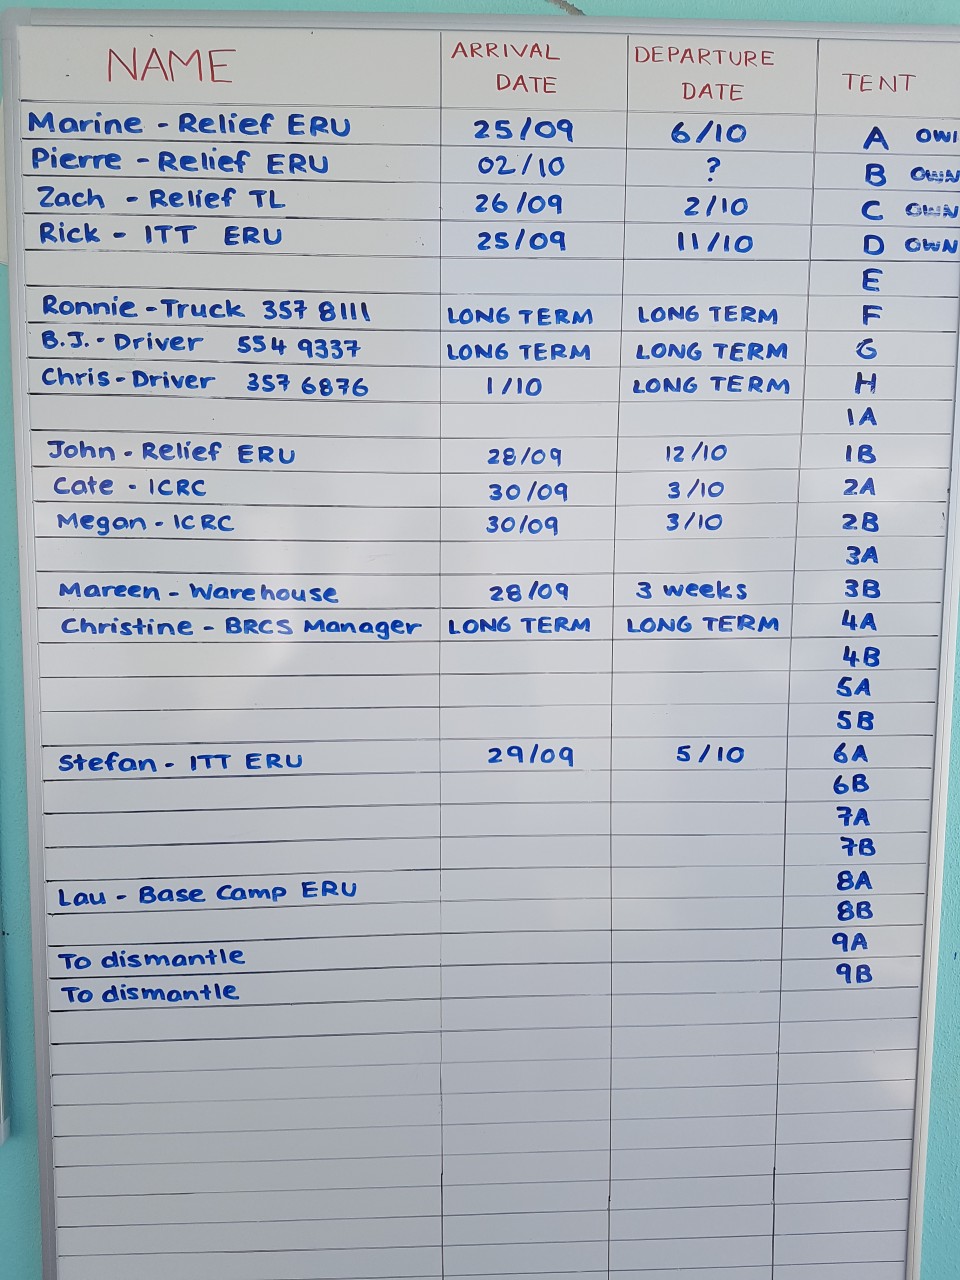 NAME ARRIVAL DATE DEPARTURE DATE TENT
Marine - Relief ERU 25/09 6/10 A OWN
Pierre - Relief ERU 02/10 ? B OWN
Zach - Relief TL 26/09 2/10 C OWN
Rick - ITT ERU 25/09 11/10 D OWN
E
Ronnie - Truck 357 8111 LONG TERM LONG TERM F
B.J. - Driver 554 9337 LONG TERM LONG TERM G
Chris - Driver 357 6876 1/10 LONG TERM H
1A
John - Relief ERU 28/09 12/10 1B
Cate - ICRC 30/09 3/10 2A
Megan - ICRC 30/09 3/10 2B
3A
Mareen - Warehouse 28/09 3 weeks 3B
Christine - BRCS Manager LONG TERM LONG TERM 4A
4B
5A
5B
Stefan - ITT ERU 29/09 5/10 6A
6B
7A
7B
Lau - Base Camp ERU 8A
8B
To dismantle 9A
To dismantle 9B